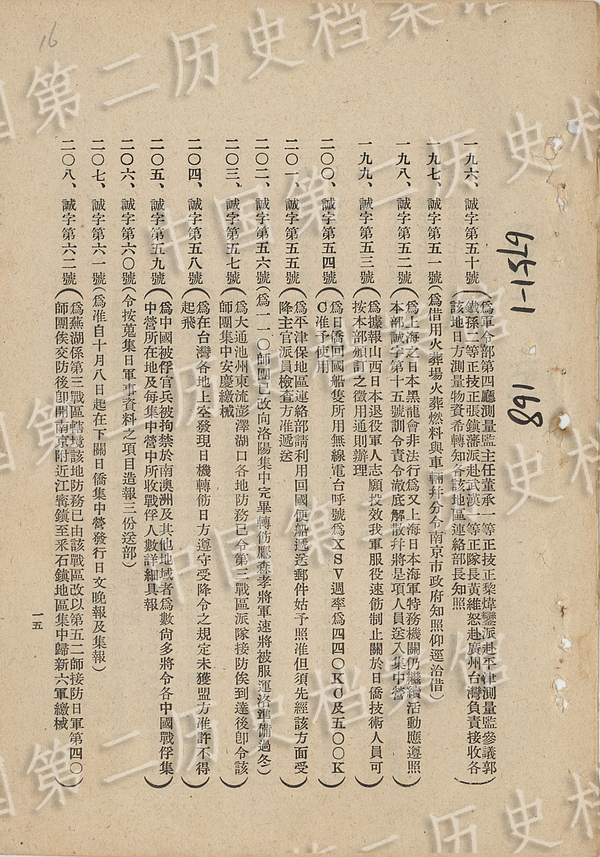 16
一九六、誠字第五十號（爲軍令部第四廳測量監主任董承一等正技正黎煒鑾派赴平津測量監參議郭
鐵孫二等正技正張鎮藩派赴武漢一等正隊長黃維恕赴廣州台灣負責接收各
該地日方測量物資希轉知各該地區連絡部長知照）
一九七、誠字第五一號（爲借用火葬場火葬燃料與車輛幷分令南京市政府知照仰逕洽借）
一九八、誠字第五二號（爲上海之日本黑龍會非法行爲又上海日本海軍特務機關仍繼續活動應遵照
本部誠字第十五號訓令責令徹底解散幷將是項人員送入集中營）
一九九、誠字第五三號（爲據報山西日本退役軍人志願投效我軍服役速飭制止關於日僑技術人員可
按本部頒訂之徵用通則辦理）
二〇〇、誠字第五四號（爲日僑回國船隻所用無線電台呼號爲XSV週率爲四四〇KC及五〇〇K
C准予使用）
二〇一、誠字第五五號（爲平津保地區連絡部請利用回國便船遞送郵件姑予照准但須先經該方面受
降主官派員檢查方准遞送）
二〇二、誠字第五六號（爲一一〇師團已改向洛陽集中完畢轉飭鷹森孝將軍速將被服運洛準備過冬）
二〇三、誠字第五七號（爲大通池州東流彭澤湖口各地防務已令第三戰區派隊接防俟到達後卽令該
師團集中安慶繳械）
二〇四、誠字第五八號（爲在台灣各地上空發現日機轉飭日方遵守受降令之規定未獲盟方准許不得
起飛）
二〇五、誠字第五九號（爲中國被俘官兵被拘禁於南澳洲及其他地域者爲數尙多將令各中國戰俘集
中營所在地及每集中營中所收戰俘人數詳細具報）
二〇六、誠字第六〇號（令按蒐集日軍事資料之項目造報三份送部）
二〇七、誠字第六一號（爲准自十月八日起在下關日僑集中營發行日文晚報及集報）
二〇八、誠字第六二號（爲蕪湖係第三戰區轄境該地防務已由該戰區改以第五二師接防日軍第四〇
師團俟交防後卽開南京附近江甯鎮至釆石鎮地區集中歸新六軍繳械）
一五
中国第二历史档案馆